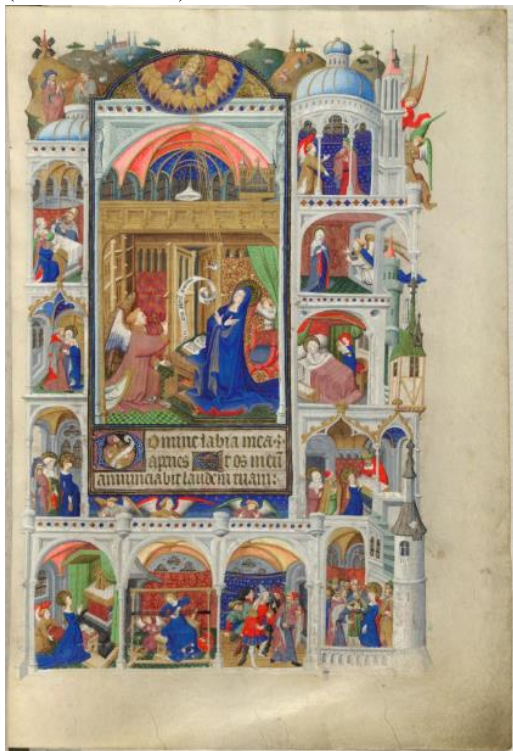 Domine labia mea
aperies Et os meū
annunciabit laudem tuam: